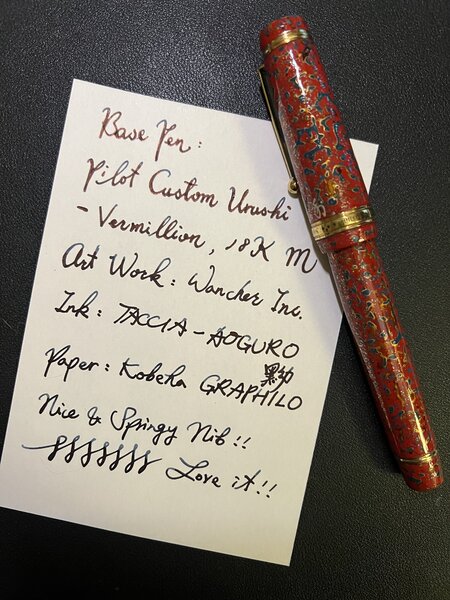 Base Pen :
Pilot Custom Urushi
- Vermillion , 18K M
Art Work : Wancher Inc.
Ink : TACCIA - AOGURO
Paper : Kobeha GRAPHILO
Nice & Springy Nib !!
Love it !!